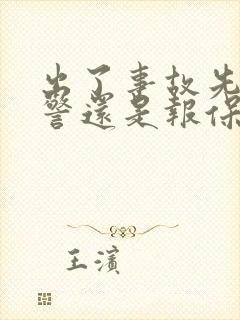 出了事故先
警还是報保
王濱